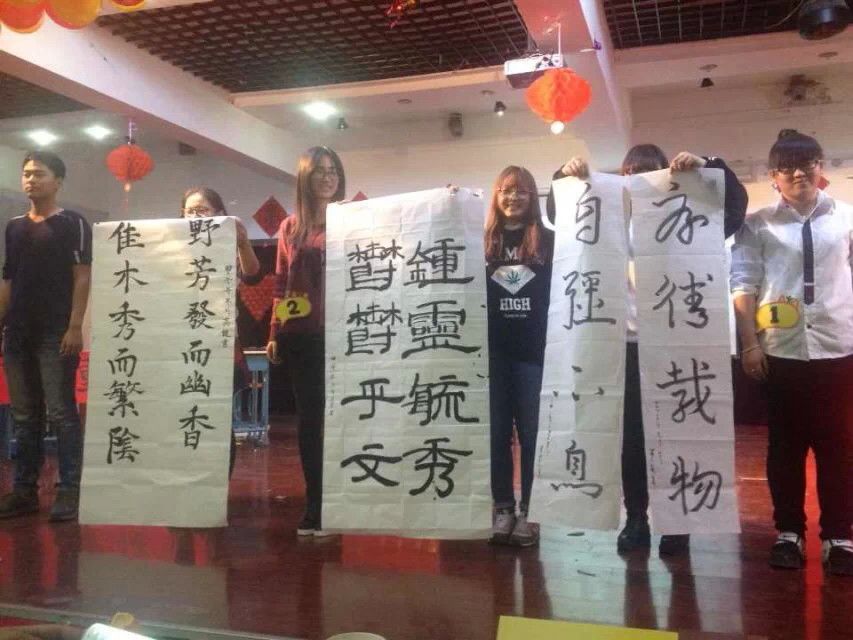 野芳發而幽香
佳木秀而繁陰
2
鍾靈毓秀
鬱鬱乎文
HIGH
自強不息
厚德載物
1